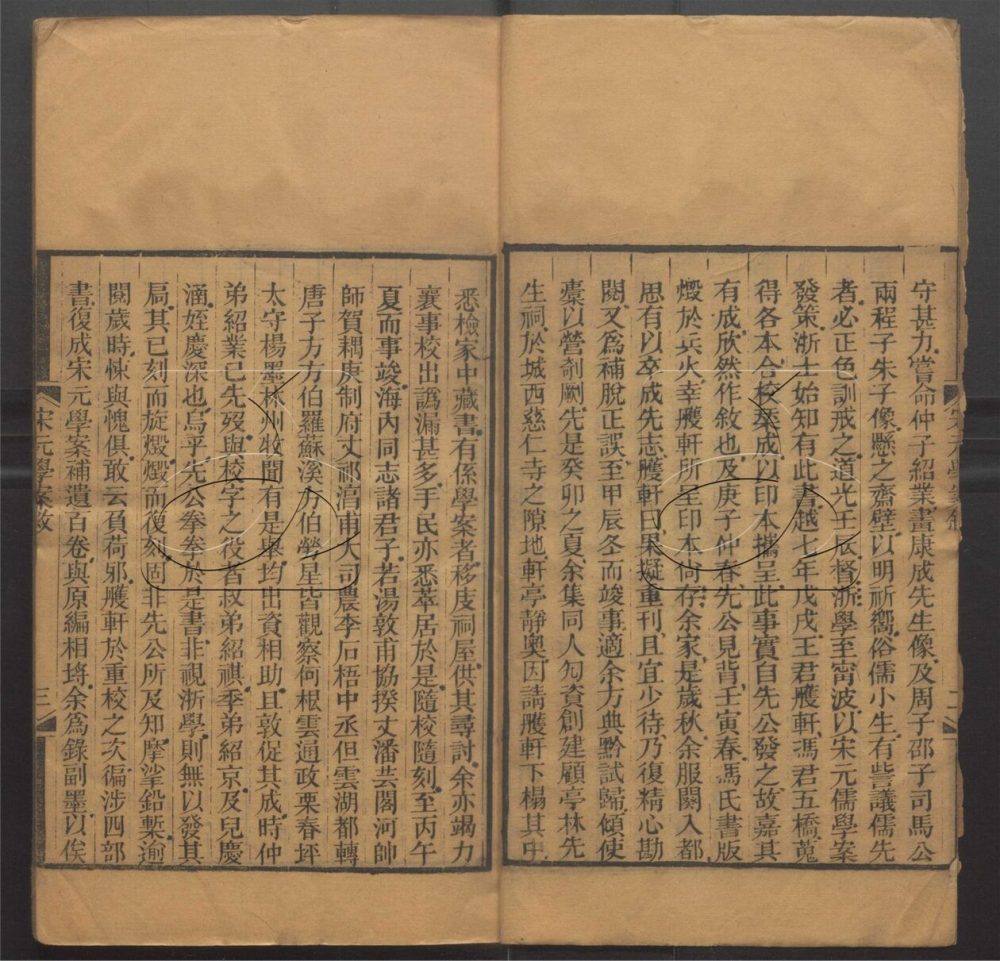 守甚力嘗命仲子紹業畫康成先生像及周子邵子司馬公
兩程子朱子像懸之齋壁以明祈嚮俗儒小生有訾議儒先
者必正色訓戒之道光壬辰督浙學至甯波以宋元儒學案
發策浙士始知有此書越七年戊戌王君雘軒馮君五橋蒐
得各本合校栞成以印本攜呈此事實自先公發之故嘉其
有成欣然作敘也及庚子仲春先公見背壬寅春馮氏書版
燬於兵火幸雘軒所呈印本尚存余家是歲秋余服闋入都
思有以卒成先志雘軒曰果擬重刊且宜少待乃復精心勘
閱又為補脫正誤至甲辰冬而竣事適余力典黔試歸傾使
橐以營剞劂先是癸卯之夏余集同人匄資創建顧亭林先
生祠於城西慈仁寺之隙地軒亭靜奧因請雘軒下榻其中
宋元學案敘
二
悉檢家中藏書有係學案者移庋祠屋供其尋討余亦竭力
襄事校出譌漏甚多手民亦悉萃居於是隨校隨刻至丙午
夏而事竣海內同志諸君子若湯敦甫協揆丈潘芸閣河帥
師賀耦庚制府丈祁淳甫大司農李石梧中丞但雲湖都轉
唐子方方伯羅蘇溪方伯勞星皆觀察何根雲通政栗春坪
太守楊墨林州牧聞有是舉均出資相助且敦促其成時仲
弟紹業已先歿與校字之役者叔弟紹祺季弟紹京及兒慶
涵姪慶深也烏乎先公拳拳於是書非視浙學則無以發其
局其已刻而旋燬燬而復刻固非先公所及知摩挲鉛槧逾
閱歲時悚與愧俱敢云負荷邪雘軒於重校之次徧涉四部
書復成宋元學案補遺百卷與原編相埒余為錄副墨以俟
宋元學案敘
三